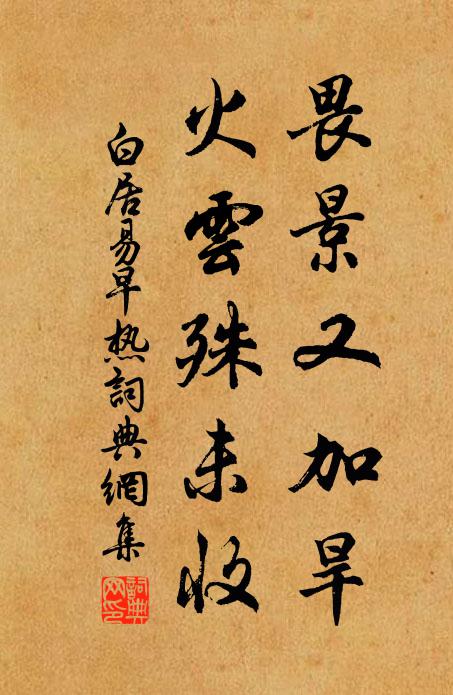 畏景又加旱
火雲殊未收
白居易早热詞典網集
詞典网印